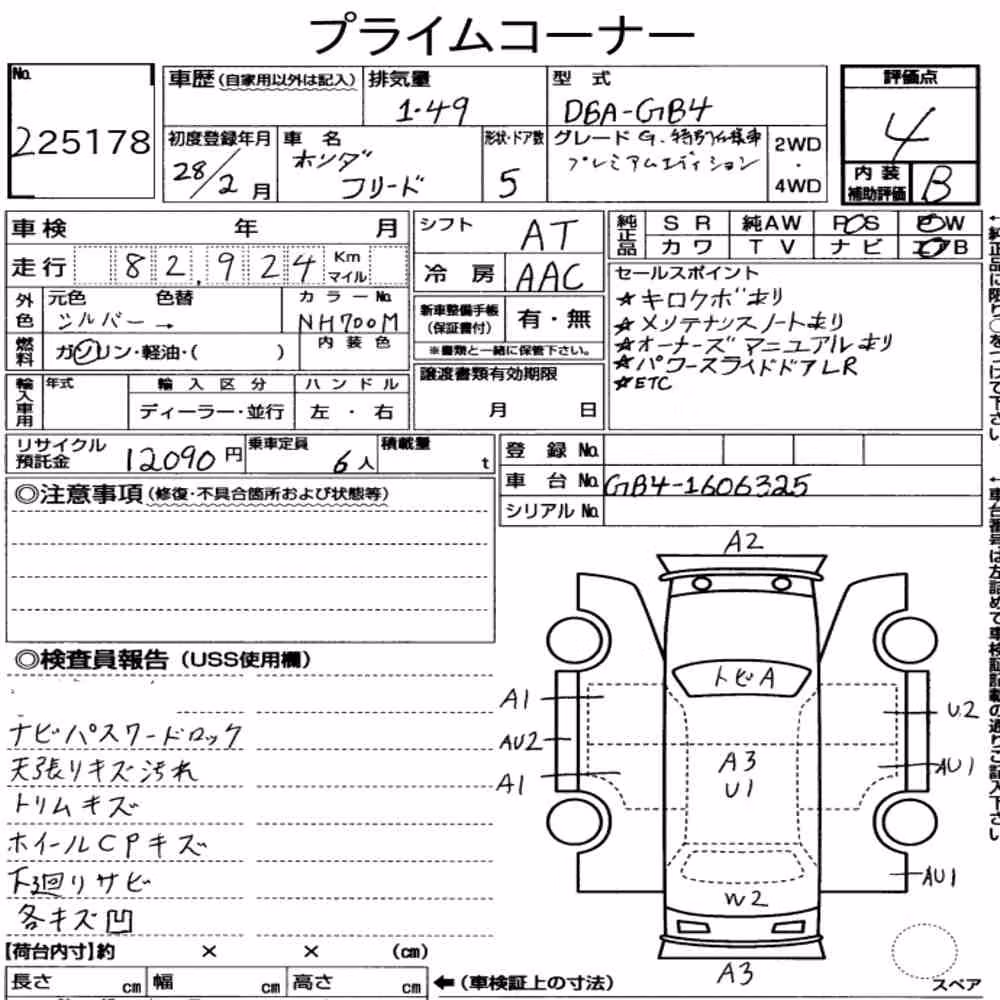 プライムコーナー
No.
225178
車歴（自家用以外は記入）
排気量
1.49
型 式
DBA-GB4
評価点
4
初度登録年月
28/2月
車 名
ホンダ
フリード
形状・ドア数
5
グレード G.特別仕様車
プレミアムエディション
2WD
・
4WD
内 装
補助評価
B
車検 年 月
走行 82,924 Km
マイル
シフト AT
冷 房 AAC
純正品
S R 純AW P S P W
カ ワ T V ナ ビ エアB
外色
元色 色替 カラーNo.
シルバー→ NH700M
燃料
ガソリン・軽油・( )
内装色
新車整備手帳
（保証書付）
有・無
※書類と一緒に保管下さい。
セールスポイント
☆キロクボ有り
☆メンテナンスノート有り
☆オーナーズマニュアル有り
☆パワースライドドアLR
☆ETC
輸入車用
年式 輸入区分 ハンドル
ディーラー・並行 左・右
譲渡書類有効期限
月 日
リサイクル
預託金
12090円
乗車定員
6人
積載量
t
登 録 No.
車 台 No. GB4-1606325
シリアル No.
◎注意事項（修復・不具合箇所および状態等）
◎検査員報告（USS使用欄）
ナビパスワードロック
天張りキズ汚れ
トリムキズ
ホイールCPキズ
下廻りサビ
各キズ凹
A2
トビA
A1
AU2
A1
A3
U1
U2
AU1
AU1
W2
A3
スペア
【荷台内寸】約 × × (cm)
長さ cm 幅 cm 高さ cm
←（車検証上の寸法）
←純正品に限り○をつけて下さい
←車台番号は左詰めで車検証記載の通りご記入下さい